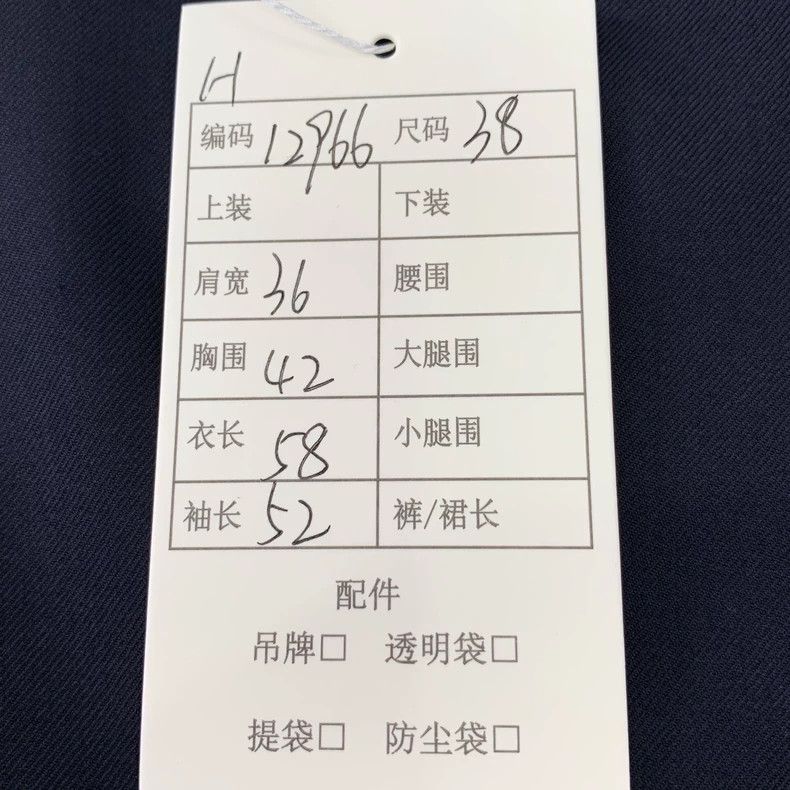 H
编码 12966 尺码 38
上装 下装
肩宽 36 腰围
胸围 42 大腿围
衣长 58 小腿围
袖长 52 裤/裙长
配件
吊牌□ 透明袋□
提袋□ 防尘袋□